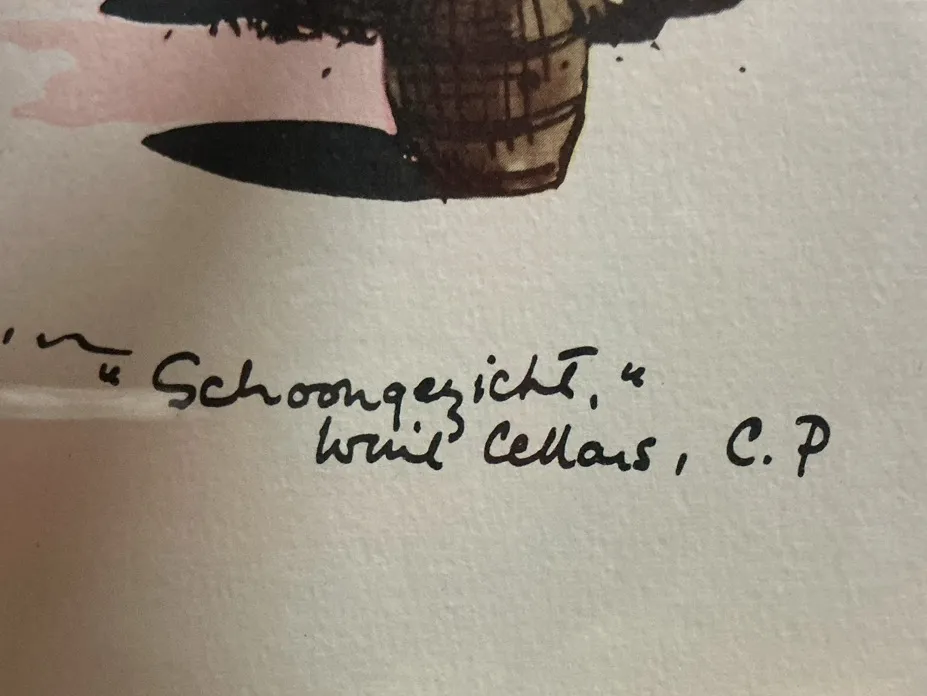 "Schoongezicht,"
Wine Cellars, C.P